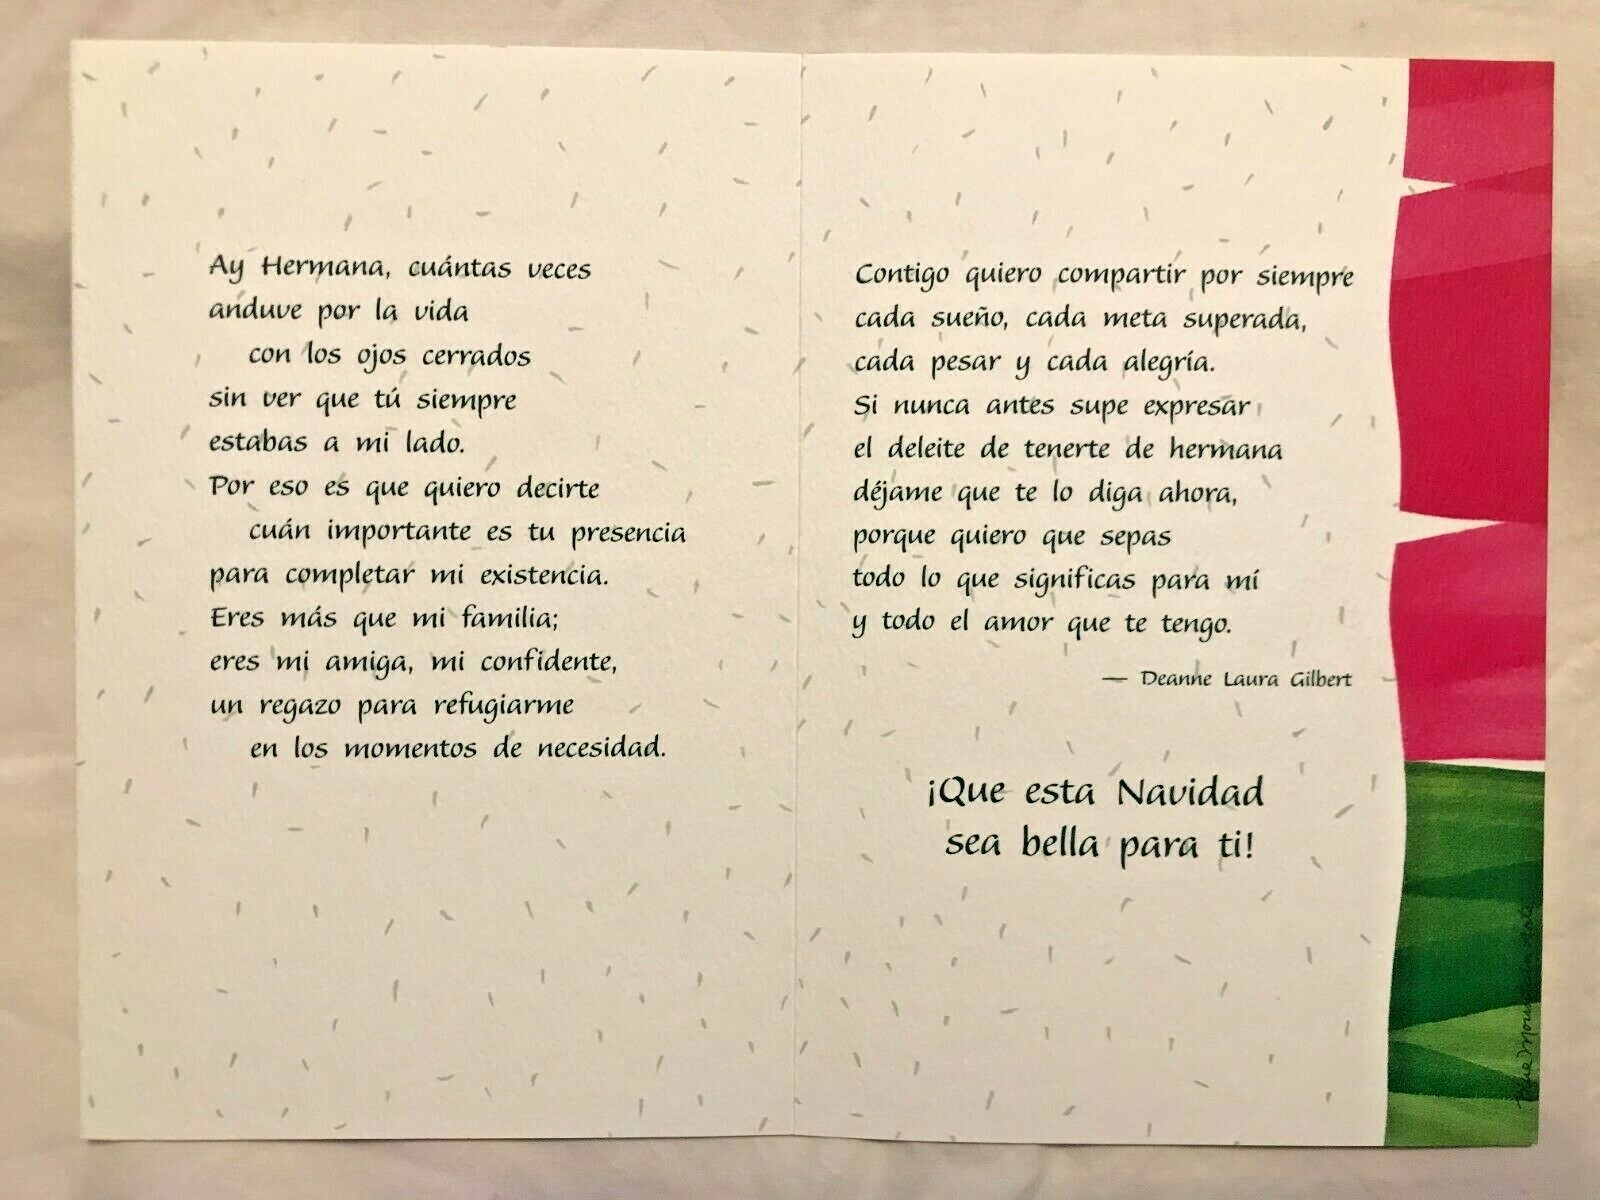 Ay Hermana, cuántas veces
anduve por la vida
con los ojos cerrados
sin ver que tú siempre
estabas a mi lado.
Por eso es que quiero decirte
cuán importante es tu presencia
para completar mi existencia.
Eres más que mi familia;
eres mi amiga, mi confidente,
un regazo para refugiarme
en los momentos de necesidad.
Contigo quiero compartir por siempre
cada sueño, cada meta superada,
cada pesar y cada alegría.
Si nunca antes supe expresar
el deleite de tenerte de hermana
déjame que te lo diga ahora,
porque quiero que sepas
todo lo que significas para mí
y todo el amor que te tengo.
— Deanne Laura Gilbert
¡Que esta Navidad
sea bella para ti!